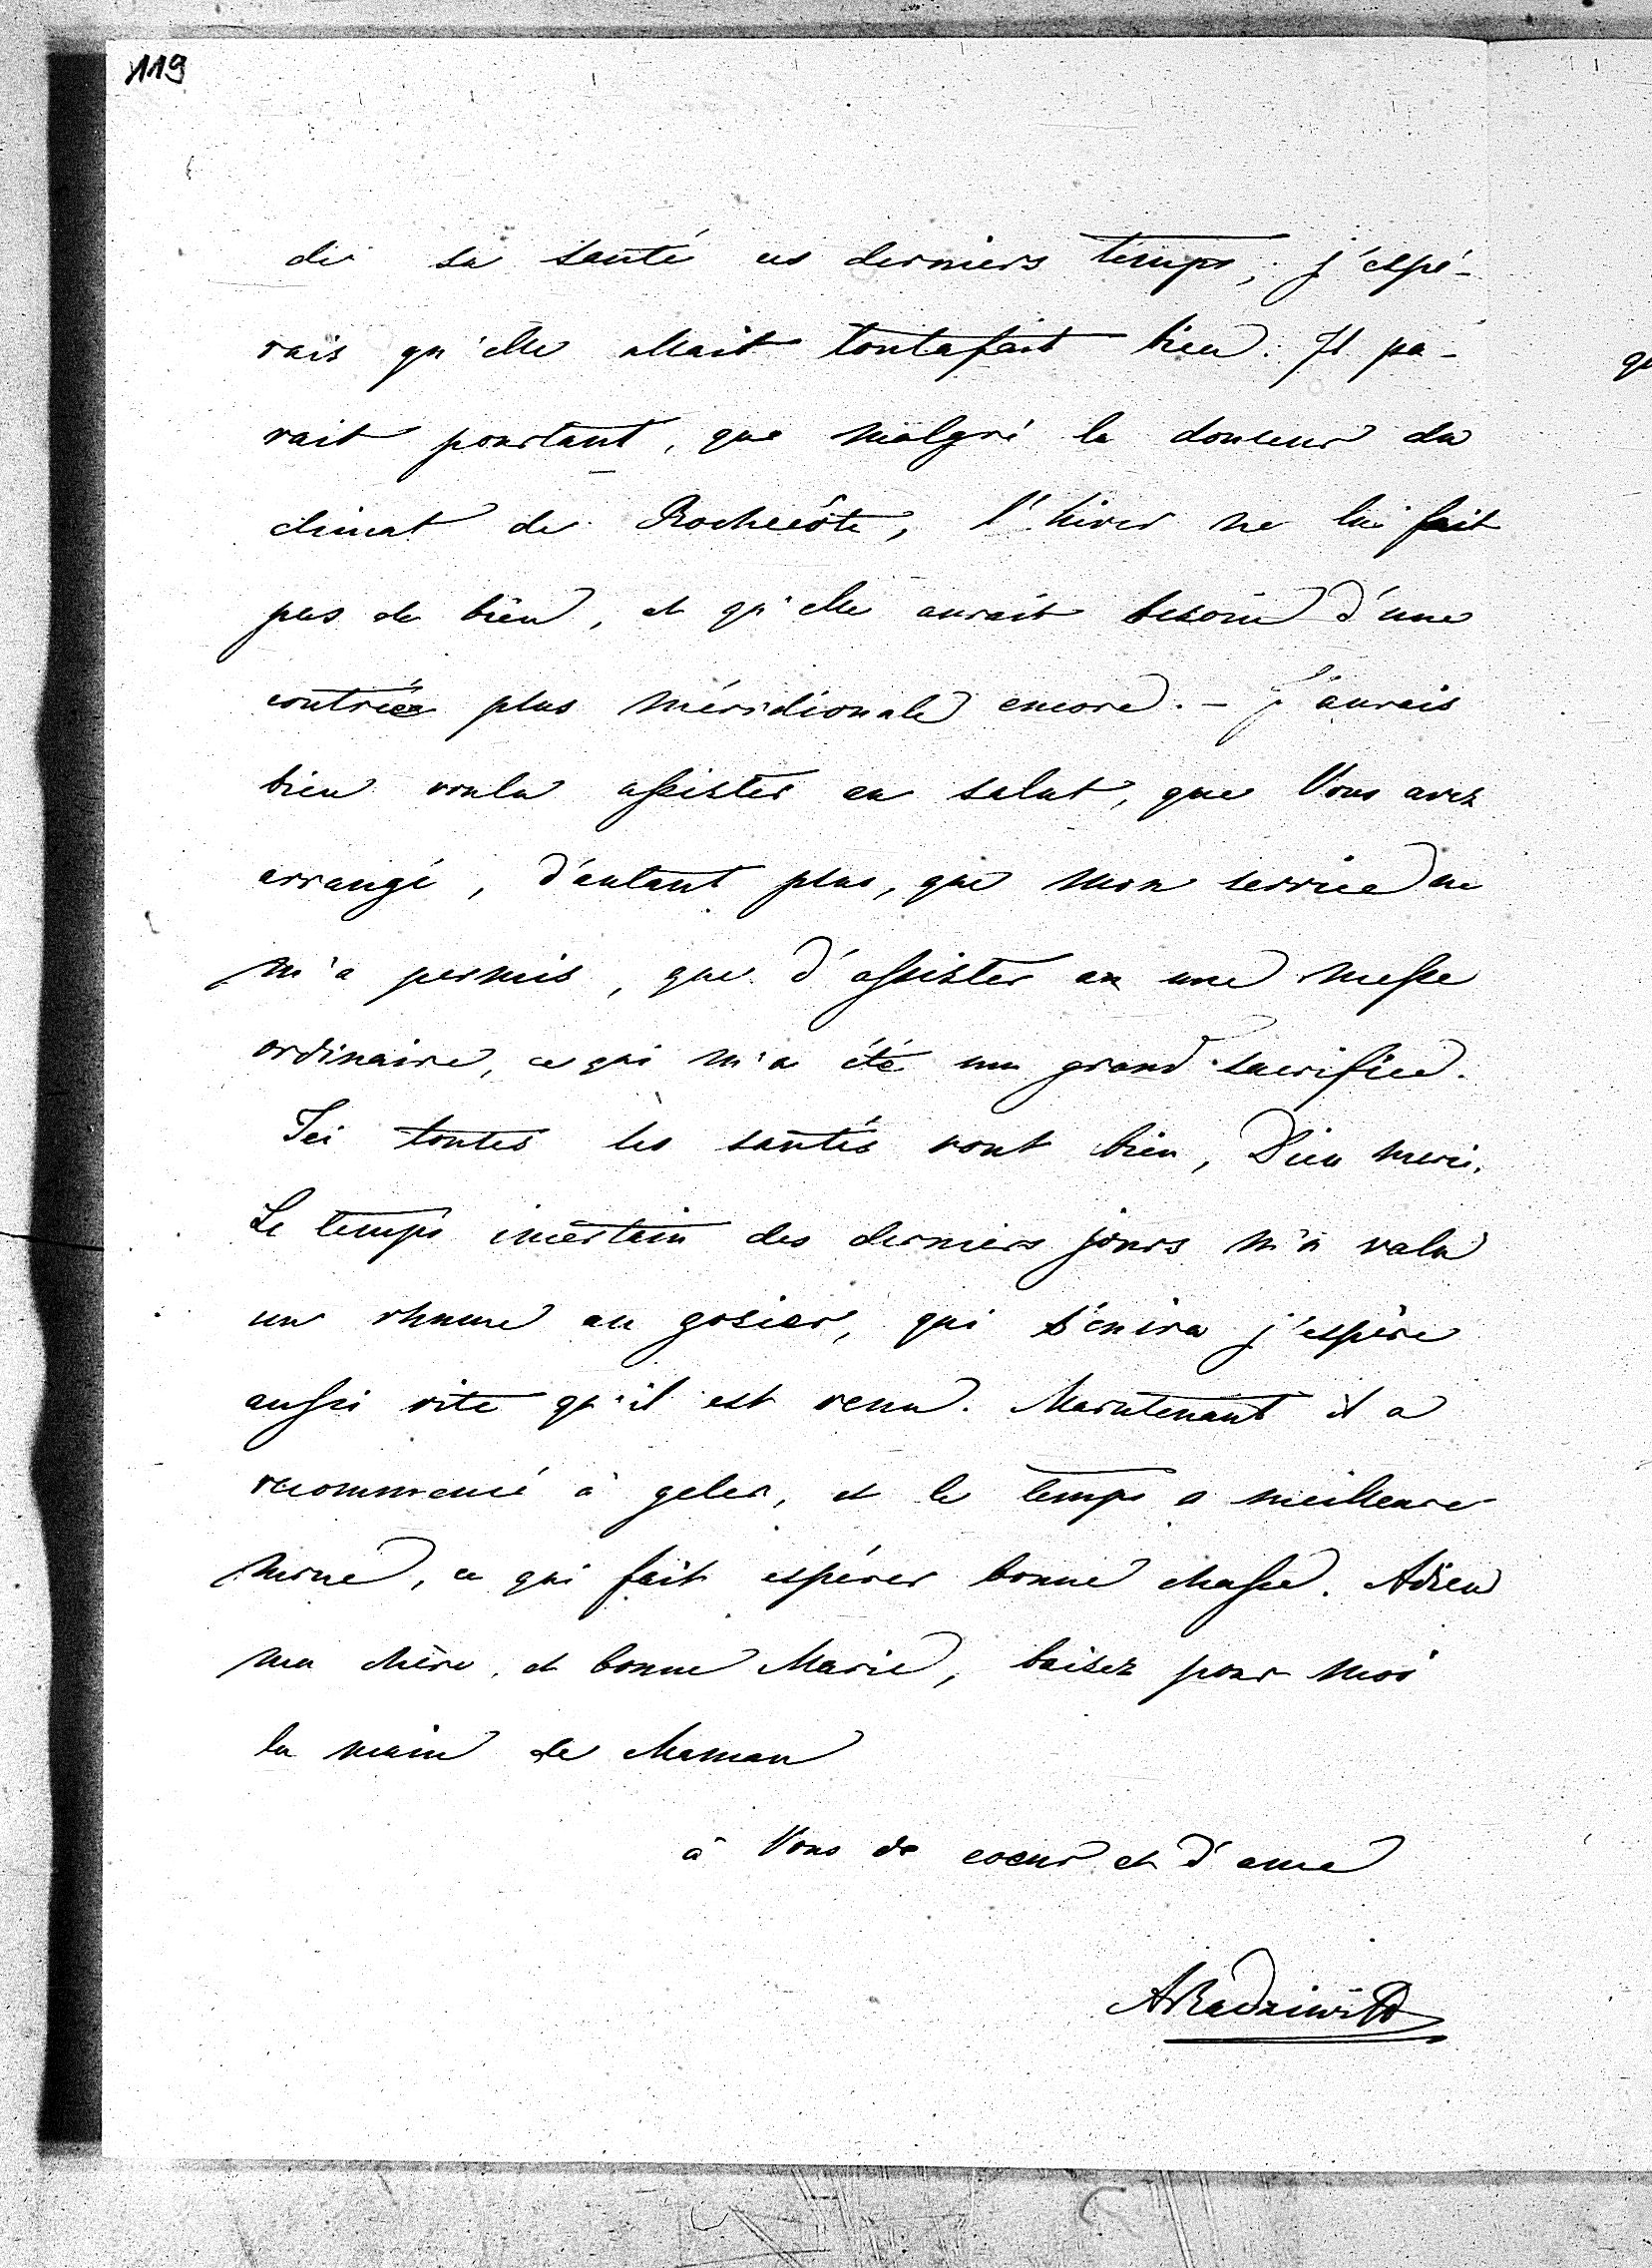 119
de sa santé ces derniers temps; j'espé-
rais qu'elle allait toutafait bien. Il pa-
rait pourtant, que malgré la douceur du
climat de Rochecôte, l'hiver ne lui fait
pas de bien, et qu'elle aurait besoin d'une
contrée plus méridionale encore. – J'aurais
bien voulu assister au salut, que Vous avez
arrangé, d'autant plus, que mon service ne
m'a permis, que d'assister a une messe
ordinaire, ce qui m'a été un grand sacrifice.
Ici toutes les santés vont bien, Dieu merci.
Le temps incertain des derniers jours m'a valu
un rhume au gosier, qui s'enira j'espère
aussi vite qu'il est venu. Maintenant il a
recommencé à geler, et le temps a meilleure
mine, ce qui fait espérer bonne chasse. Adieu
ma chère, et bonne Marie, baisez pour moi
la main de Maman
à Vous de coeur et d'ame
ARadziwiłł
qu